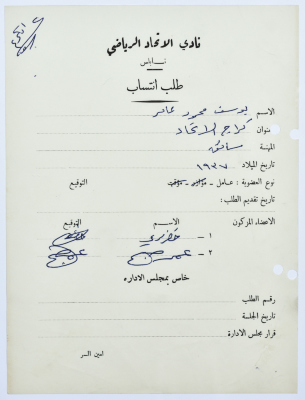 نادي الاتحاد الرياضي
نابلس
طلب انتساب
الاسم يوسف محمود عامر
عنوان كراج الاتحاد
المهنة سائق
تاريخ الميلاد ١٩٣٧
نوع العضوية : عامل - مؤازر - مؤقت التوقيع
تاريخ تقديم الطلب :
الاعضاء المزكون الاسم التوقيع
١ -
٢ - عمر
خاص بمجلس الاداره
رقم الطلب
تاريخ الجلسة
قرار مجلس الادارة
امين السر